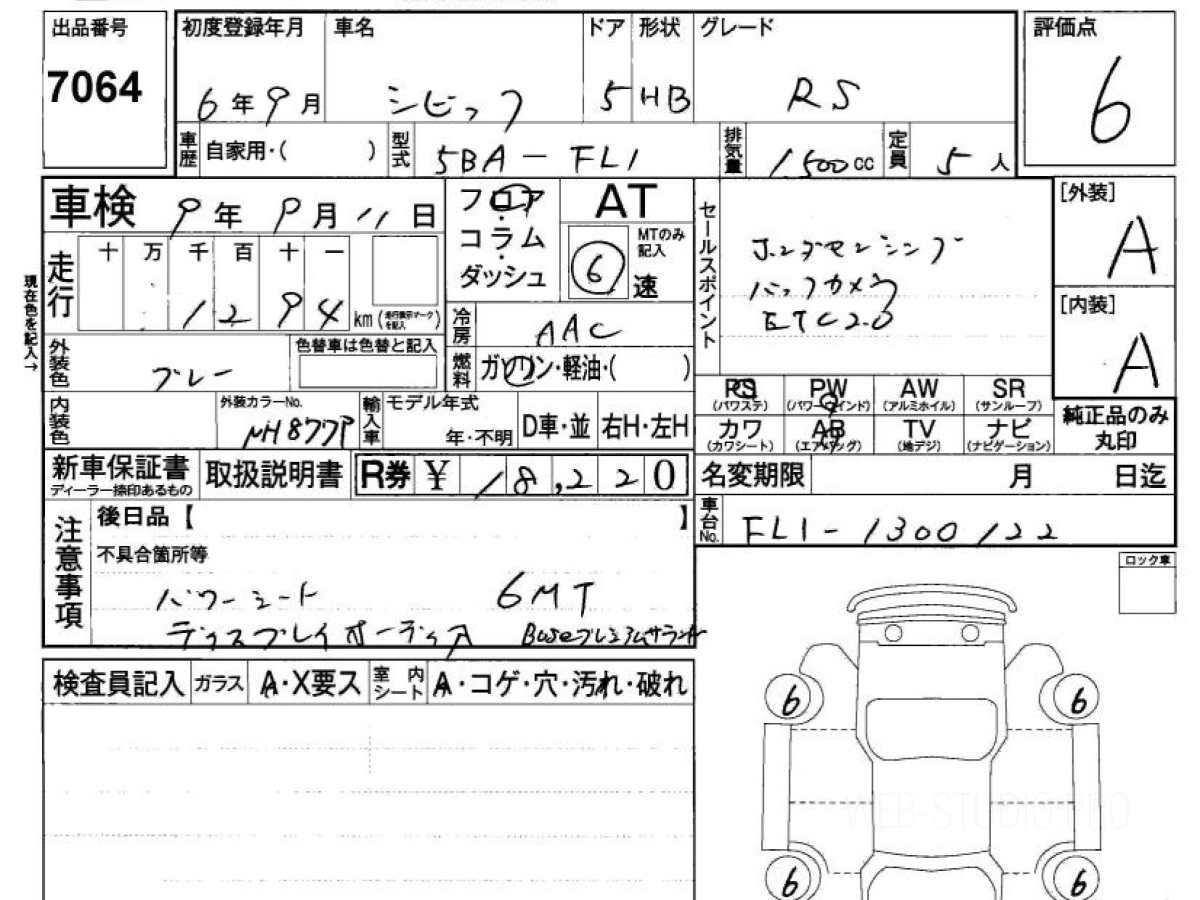 出品番号
7064
初度登録年月 車名 ドア 形状 グレード
6年9月 シビック 5 HB RS
評価点
6
車歴 自家用・( ) 型式 5BA-FL1 排気量 1500cc 定員 5人
車検 9年9月11日
フロア・コラム・ダッシュ
AT
MTのみ記入
6速
セールスポイント
ホンダセンシング
バックカメラ
ETC2.0
[外装]
A
[内装]
A
現在色を記入→
走行 十 万 千 百 十 一
1294 km(走行表示マークを記入)
冷房 AAC
燃料 ガソリン・軽油・( )
外装色 グレー
色替車は色替と記入
PS(パワステ) PW(パワーウインド) AW(アルミホイル) SR(サンルーフ)
カワ(カワシート) AB(エアバッグ) TV(地デジ) ナビ(ナビゲーション)
純正品のみ丸印
内装色 外装カラーNo. NH877P
輸入車 モデル年式 年・不明 D車・並 右H・左H
新車保証書 ディーラー捺印あるもの 取扱説明書 R券 ¥ 18,220
名変期限 月 日迄
車台No. FL1-1300122
注意事項
後日品【 】
不具合箇所等
パワーシート 6MT
ディスプレイオーディオ Boseプレミアムサウンド
ロック車
検査員記入 ガラス A・X要ス 室内シート A・コゲ・穴・汚れ・破れ
6 6
WEB-STUDIO.PRO
6 6